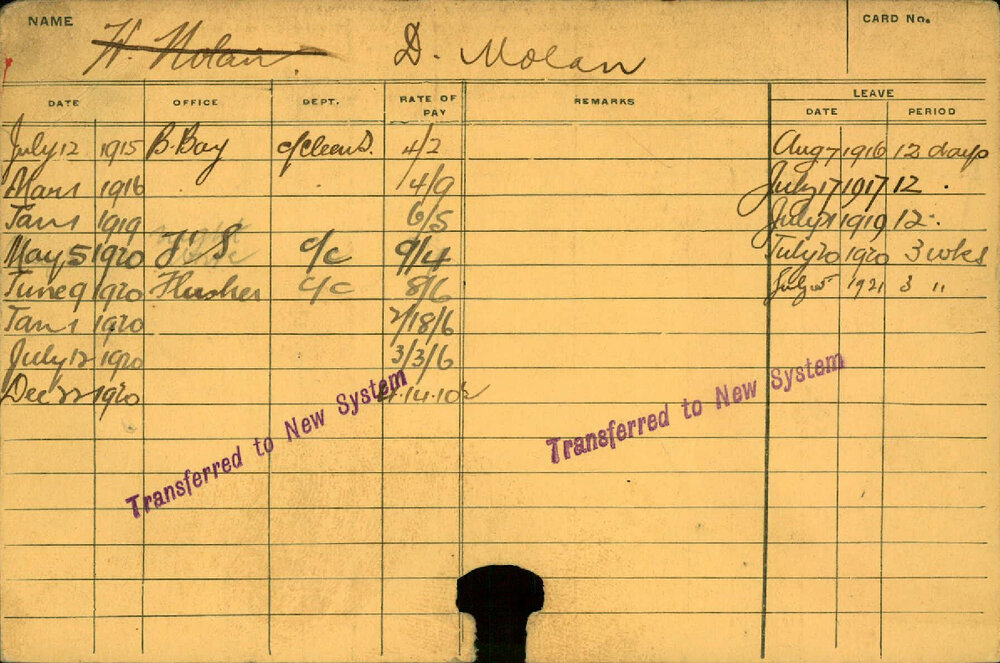 NAME
H. Nolan D. Nolan
CARD No.
DATE OFFICE DEPT. RATE OF PAY REMARKS LEAVE
DATE PERIOD
July 12 1915 B. Bay 4/2 Aug 7 1916 12 days
Mar 1 1916 4/9 July 17 1917 12 "
Jan 1 1919 6/5 July 21 1919 12 "
May 5 1920 c/c 9/4 July 20 1920 3 wks
June 9 1920 Flusher c/c 8/6 July 25 1921 3 "
Jan 1 1920 2/18/6
July 12 1920 3/3/6
Dec 22 1920 14.10½
Transferred to New System
Transferred to New System